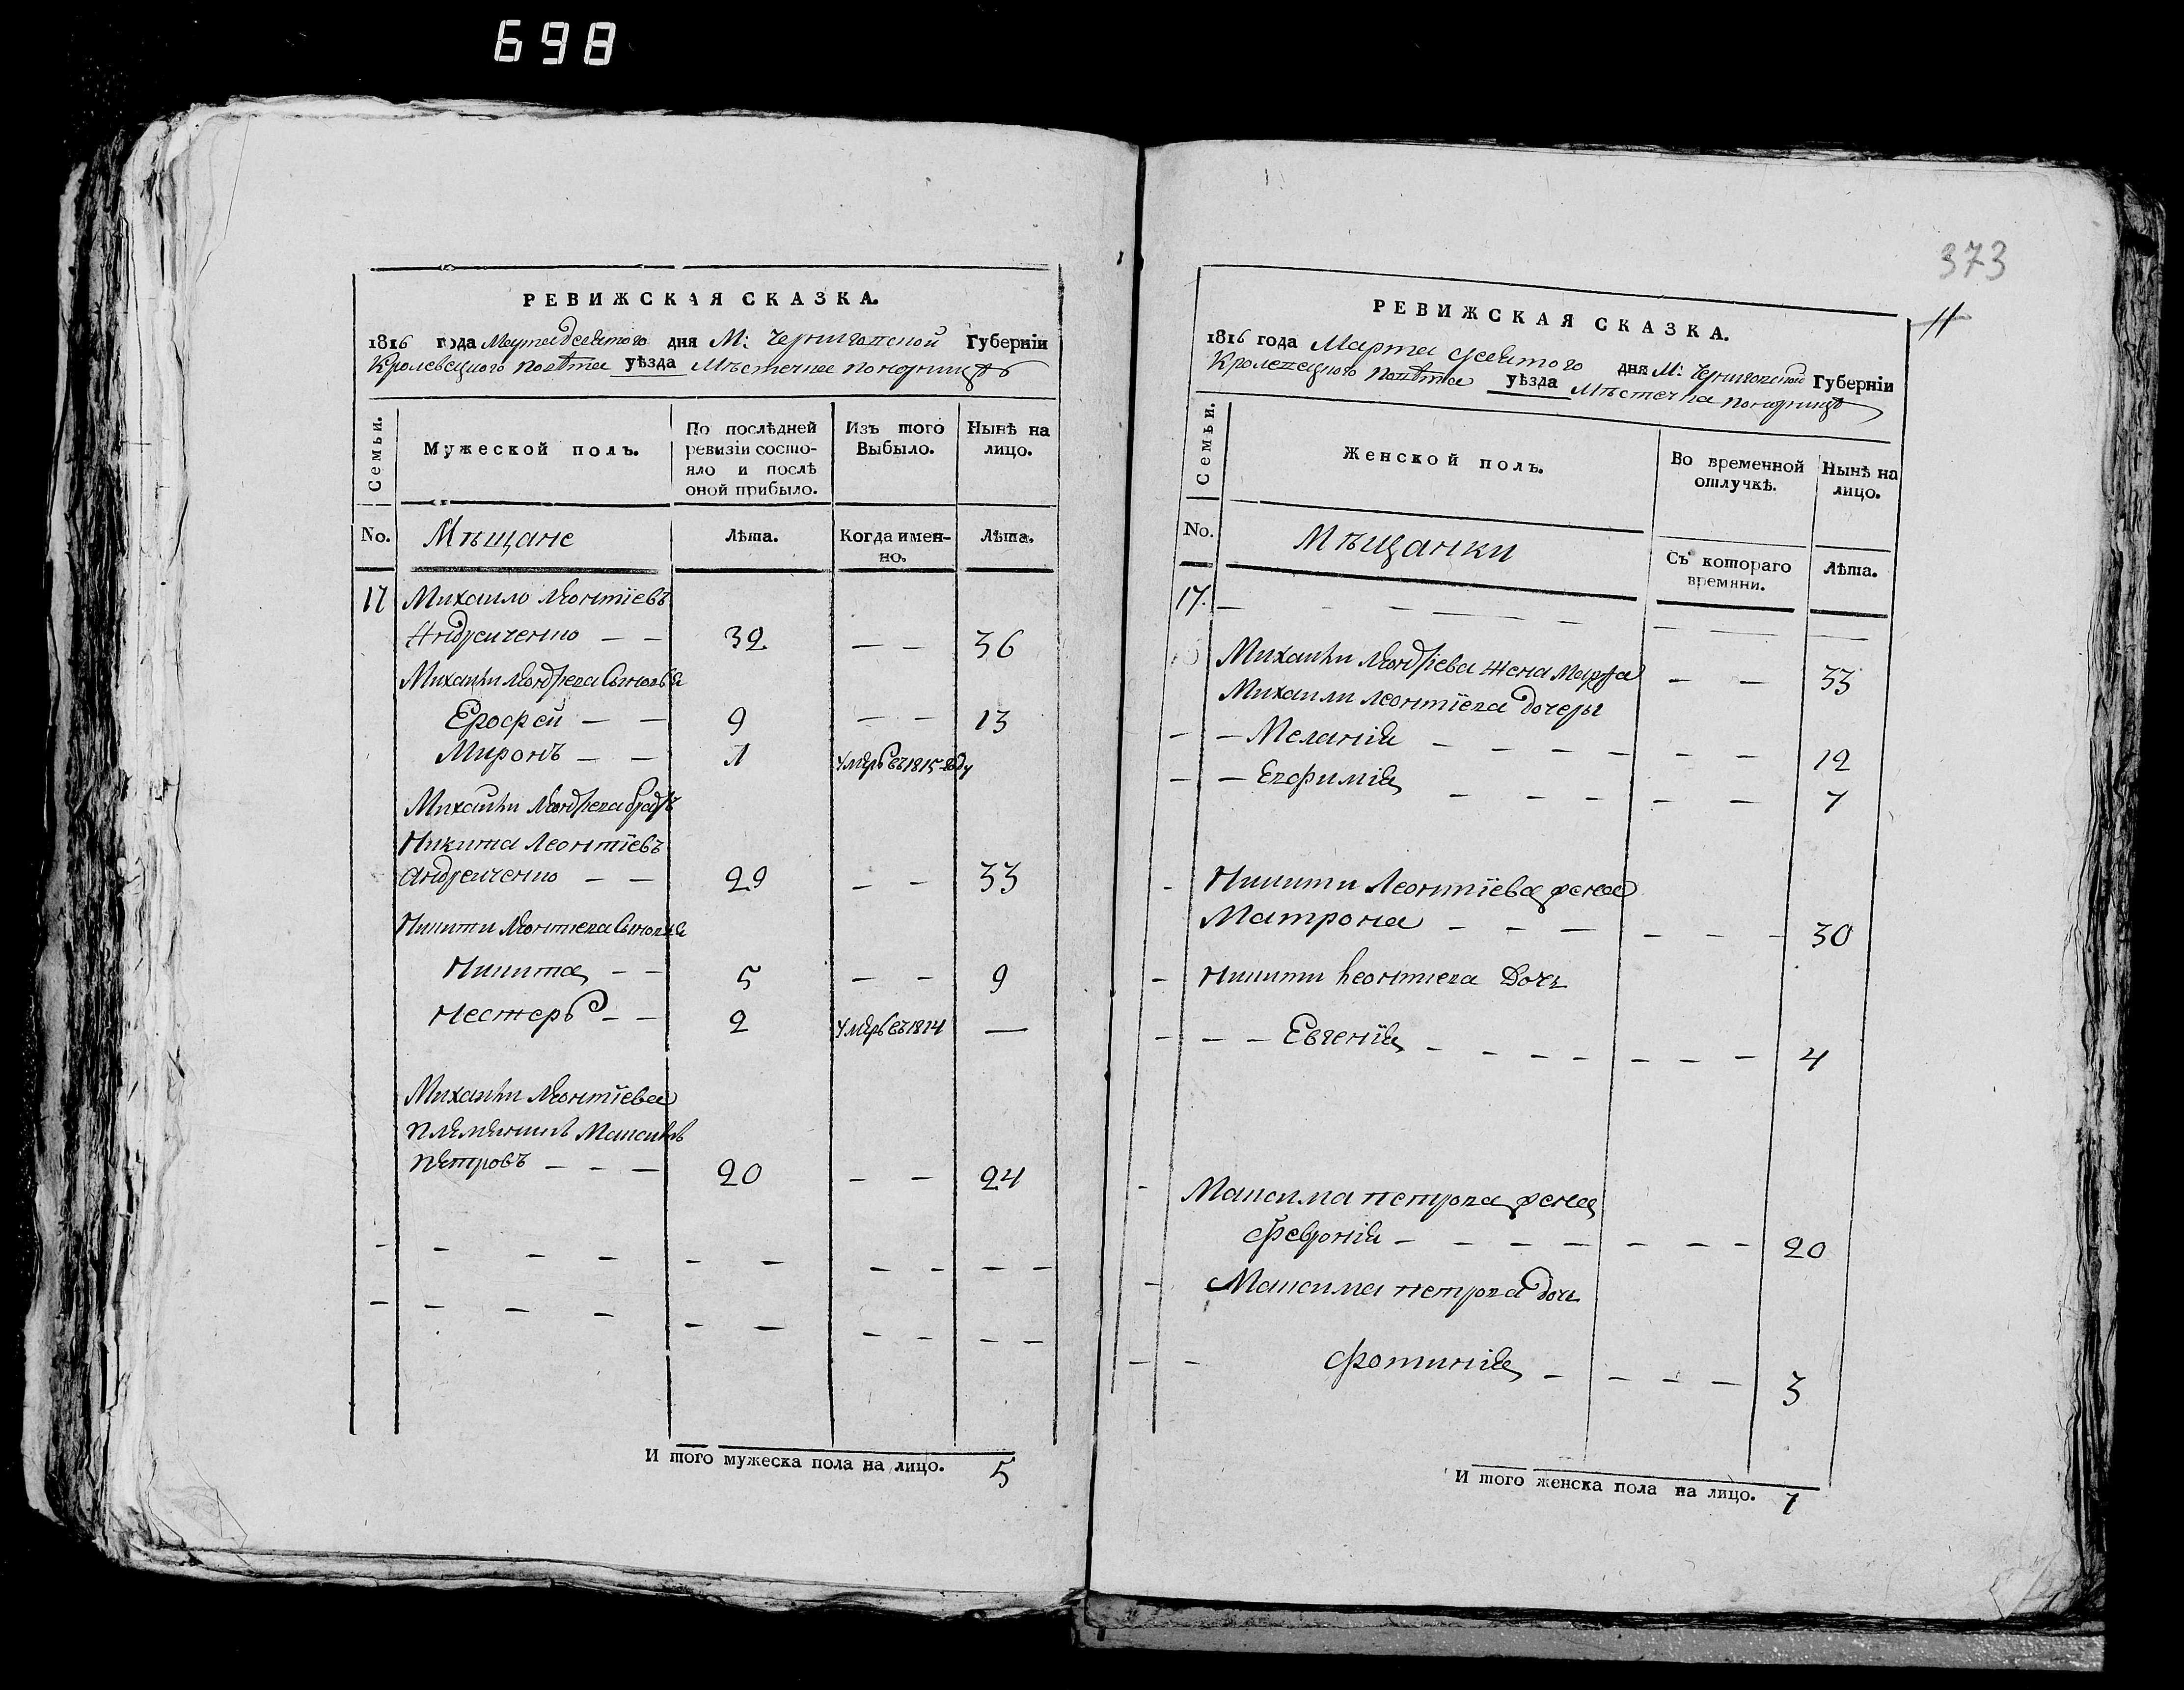 698
РЕВИЖСКАЯ СКАЗКА.
1816 года Марта девятого дня М: Черниговской Губерніи
Кролевецкого повѣта уѣзда Мѣстечка Понорницѣ
Семьи.
Мужеской полъ.
По послѣдней ревизіи состояло и послѣ оной прибыло.
Изъ того Выбыло.
Нынѣ на лицо.
No.
Мѣщане
Лѣта.
Когда именно.
Лѣта.
17 Михаило Леонтіевъ
Андреиченко — — 32 — — 36
Михайли Леонтіева Сыновья
Ерофей — — 9 — — 13
Миронъ — — 1 умеръ въ 1815 году
Михайли Леонтіева братъ
Никита Леонтіевъ
Андреиченко — — 29 — — 33
Никити Леонтиева Сыновья
Никита — — 5 — — 9
Нестеръ — — 2 умеръ въ 1814 —
Михайли Леонтіева
племянникъ Максимъ
Петровъ — — — 20 — — 24
И того мужеска пола на лицо. 5
373
11
РЕВИЖСКАЯ СКАЗКА.
1816 года Марта девятого дня М: Черниговской Губерніи
Кролевецкого повѣта уѣзда Мѣстечка Понорницѣ
Семьи.
Женской полъ.
Во временной отлучкѣ.
Нынѣ на лицо.
No.
Мѣщанки
Съ котораго времяни.
Лѣта.
17. — — — — —
Михайли Леонтіева жена Марфа — — 33
Михаили Леонтіева дочеры
— — Меланія — — — — — — 12
— — Евфимія — — — — — 7
— Никити Леонтіева жена
Матрона — — — — — — 30
— Никити Леонтиева Дочь
— — — Евгенія — — — — — — — 4
— Максима Петрова жена
Феврония — — — — — — — 20
— Максима Петрова дочь
— — Фотинія — — — — 3
И того женска пола на лицо. 7